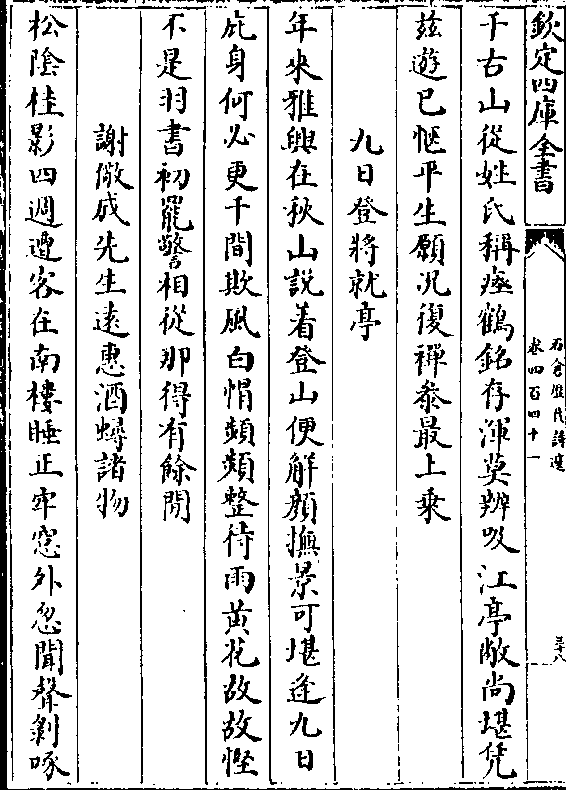 欽定四庫全書
石倉歷代詩選
卷四百四十一
三十八
千古山從姓氏稱瘞鶴銘存渾莫辨吸江亭敞尚堪凭
兹遊已愜平生願况復禪叅最上乘
九日登將就亭
年來雅興在秋山說着登山便解顔撫景可堪逢九日
庇身何必更千間欺風白幘頻頻整待雨黄花故故慳
不是羽書初罷警相從那得有餘閒
謝儆成先生逺惠酒蟳諸物
松陰桂影四週遭客在南樓睡正牢窓外忽聞聲剝啄